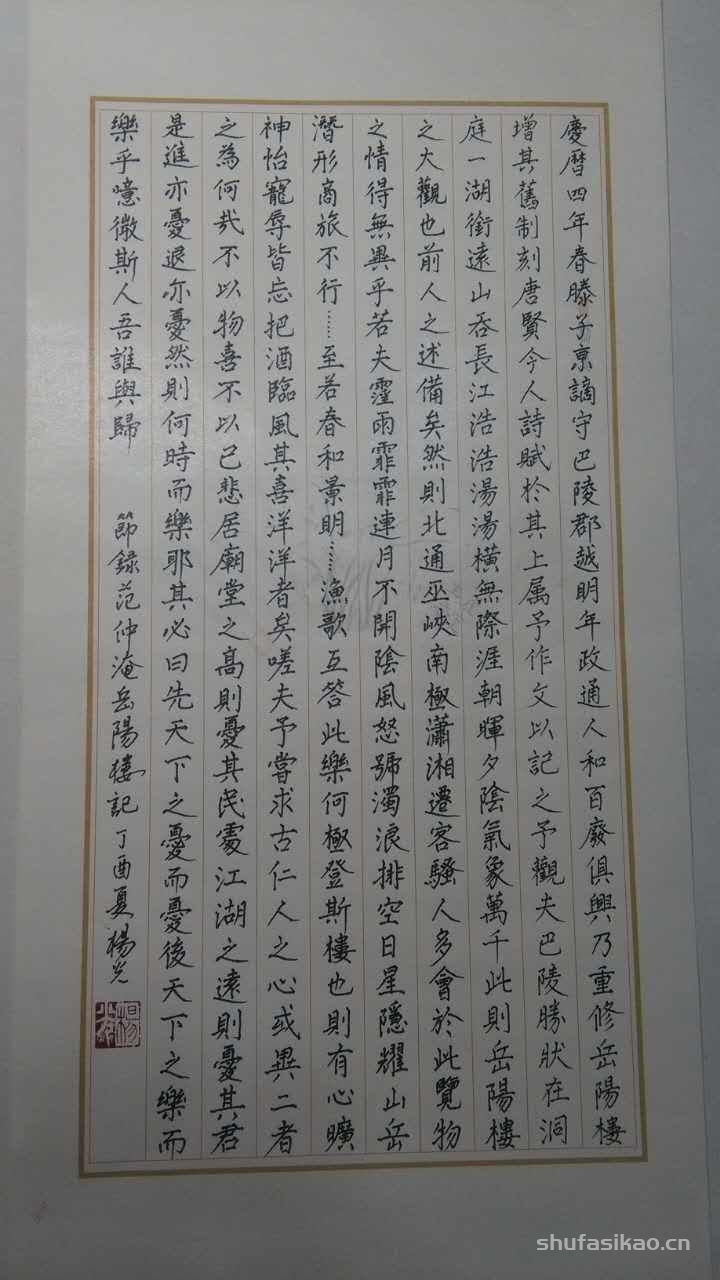 慶曆四年春滕子京謫守巴陵郡越明年政通人和百廢俱興乃重修岳陽樓
增其舊制刻唐賢今人詩賦於其上属予作文以記之予觀夫巴陵勝狀在洞
庭一湖銜遠山吞長江浩浩湯湯橫無際涯朝暉夕陰氣象萬千此則岳陽樓
之大觀也前人之述備矣然則北通巫峽南極瀟湘遷客騷人多會於此覽物
之情得無異乎若夫霪雨霏霏連月不開陰風怒號濁浪排空日星隱耀山岳
潛形商旅不行……至若春和景明……漁歌互答此樂何極登斯樓也則有心曠
神怡寵辱皆忘把酒臨風其喜洋洋者矣嗟夫予嘗求古仁人之心或異二者
之為何哉不以物喜不以己悲居廟堂之高則憂其民處江湖之遠則憂其君
是進亦憂退亦憂然則何時而樂耶其必曰先天下之憂而憂後天下之樂而
樂乎噫微斯人吾誰與歸 節錄范仲淹岳陽樓記丁酉夏楊光
shufasikao.cn